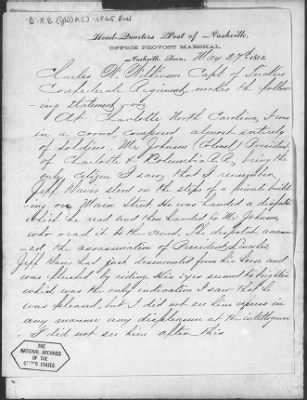 Head-Quarters Post of Nashville.
OFFICE PROVOST MARSHAL,
Nashville, Tenn. May 27th 186
Charles W. Wilkinson Capt of
Confederate Regiment, makes the follow-
ing statement
At Charlotte North Carolina, I was
in a crowd, composed almost entirely
of soldiers. Mr Johnson (Colonel) President
of Charlotte & Columbia R.R., being the
only citizen I saw, that I remember,
Jeff Davis stood on the steps of a private build-
ing on Main Street. He was handed a dispatch
which he read and then handed to Mr Johnson,
who read it to the crowd. The dispatch announ-
ced the assassination of President Lincoln
Jeff Davis had just dismounted from his horse and
was flushed by riding. His eyes seemed to brighten
which was the only indication I saw that he
was pleased, but I did not see him express in
any manner any displeasure at the intelligence
I did not see him after this
THE
NATIONAL ARCHIVES
OF THE
UNITED STATES